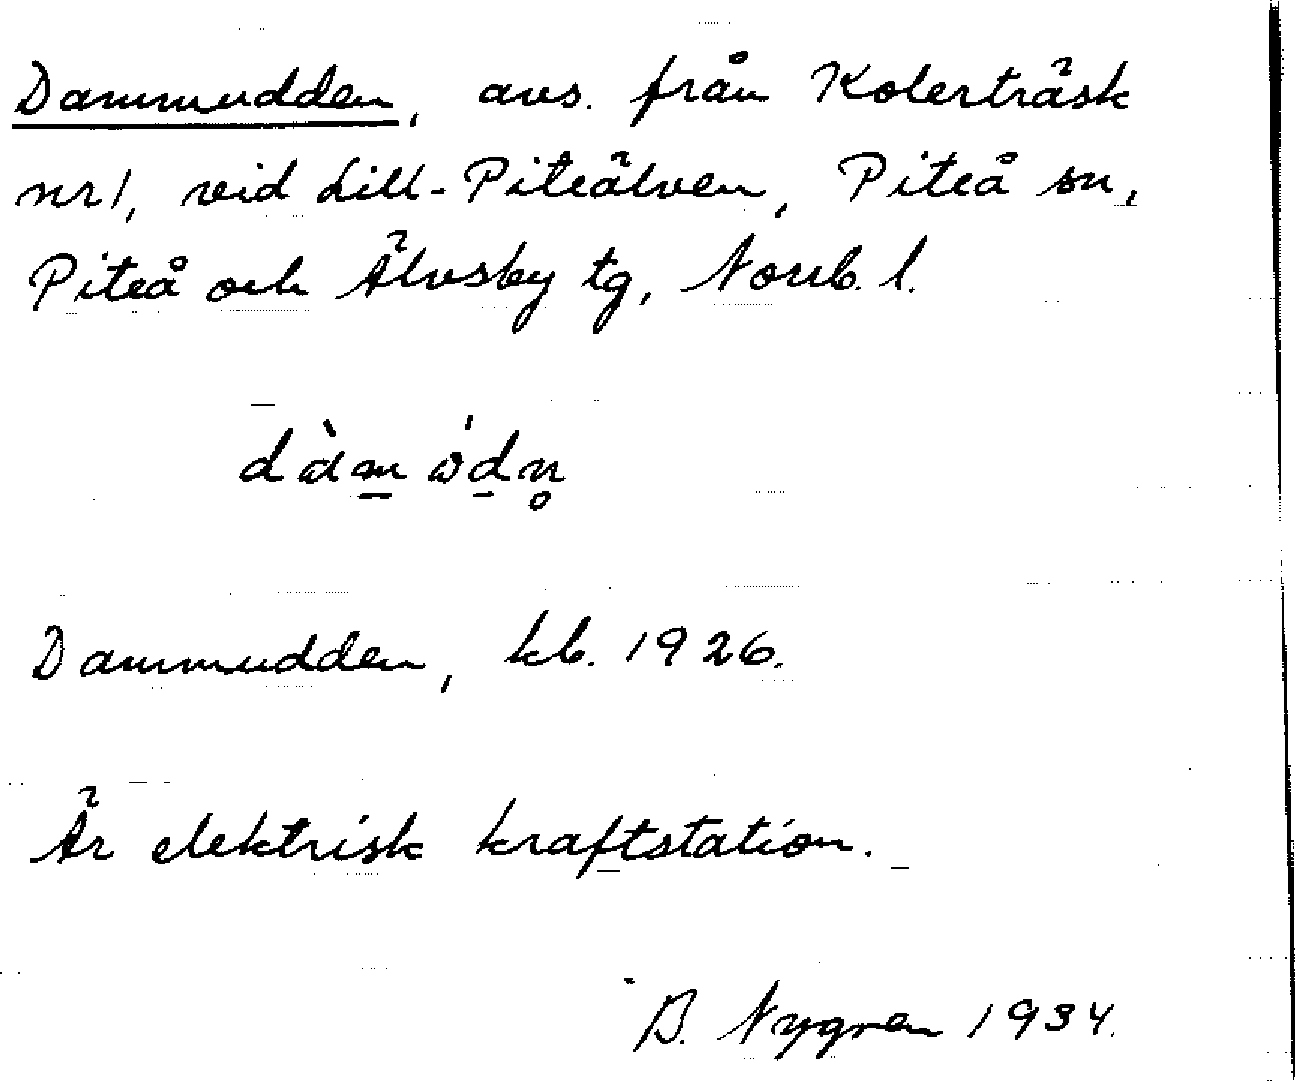 Dammudden, avs. från Kolerträsk
nr 1, vid Lill-Piteälven, Piteå sn,
Piteå och Älvsby tg, Norrb. l.
dàm ödn̥
Dammudden, kb. 1926.
Är elektrisk kraftstation.
B. Nygren 1934.